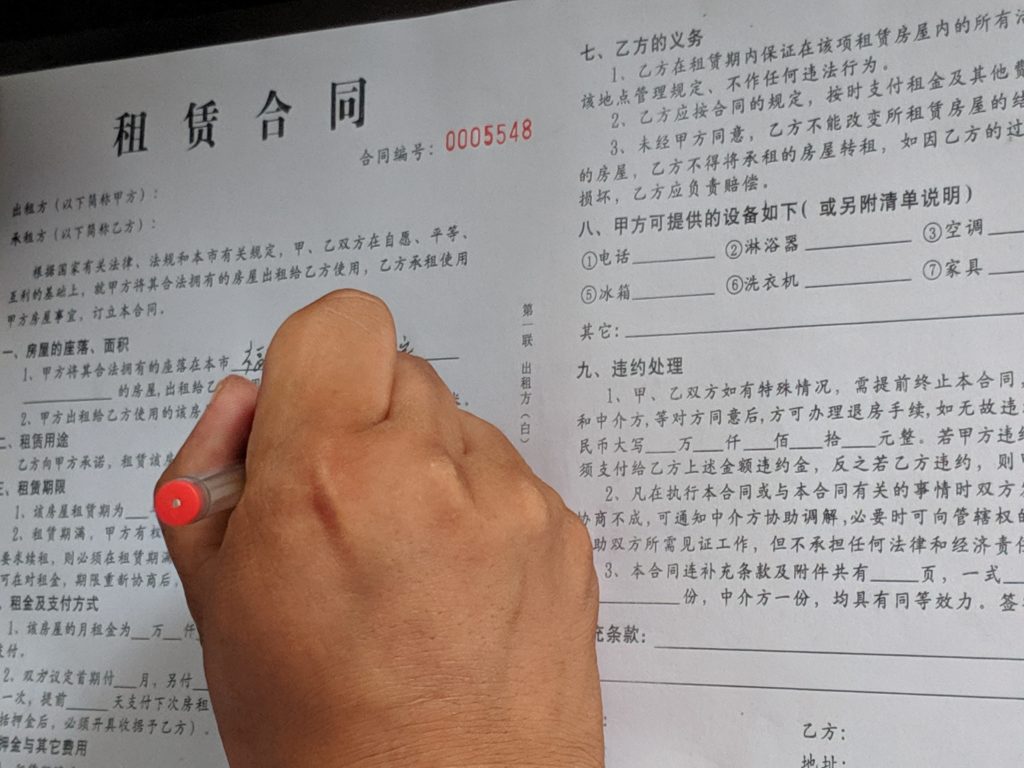 租赁合同
合同编号：0005548
出租方（以下简称甲方）：
承租方（以下简称乙方）：
根据国家有关法律、法规和本市有关规定，甲、乙双方在自愿、平等、
互利的基础上，就甲方将其合法拥有的房屋出租给乙方使用，乙方承租使用
甲方房屋事宜，订立本合同。
一、房屋的座落、面积
1、甲方将其合法拥有的座落在本市
的房屋,出租给乙
2、甲方出租给乙方使用的该房
二、租赁用途
乙方向甲方承诺，租赁该房
三、租赁期限
1、该房屋租赁期为
2、租赁期满，甲方有权
要求续租，则必须在租赁期满
可在对租金，期限重新协商后，
租金及支付方式
1、该房屋的月租金为__万__仟
支付。
2、双方议定首期付___月，另付
一次，提前____天支付下次房租
括押金后，必须开具收据予乙方）。
押金与其它费用
第一联 出租方（白）
七、乙方的义务
1、乙方在租赁期内保证在该项租赁房屋内的所有
该地点管理规定、不作任何违法行为。
2、乙方应按合同的规定，按时支付租金及其他费
3、未经甲方同意，乙方不能改变所租赁房屋的结
的房屋，乙方不得将承租的房屋转租，如因乙方的过
损坏，乙方应负责赔偿。
八、甲方可提供的设备如下(或另附清单说明)
①电话________ ②淋浴器________ ③空调
⑤冰箱________ ⑥洗衣机________ ⑦家具
其它:
九、违约处理
1、甲、乙双方如有特殊情况，需提前终止本合同，
和中介方,等对方同意后,方可办理退房手续,如无故违
民币大写___万___仟___佰___拾___元整。若甲方违约
须支付给乙方上述金额违约金，反之若乙方违约，则
2、凡在执行本合同或与本合同有关的事情时双方
协商不成,可通知中介方协助调解,必要时可向管辖权的
助双方所需见证工作，但不承担任何法律和经济责任
3、本合同连补充条款及附件共有____页，一式
________份，中介方一份，均具有同等效力。签
充条款:
乙方:
地址: